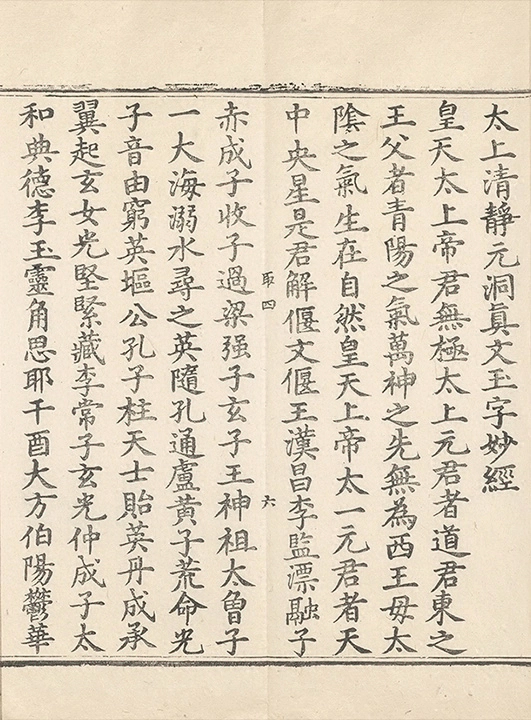 太上清靜元洞眞文玉字妙經
皇天太上帝君無極太上元君者道君東之
王父者青陽之氣萬神之先無為西王毋太
陰之氣生在自然皇天上帝太一元君者天
中央星是君解偃文偃王漢昌李監漂融子
取四
六
赤成子收子過梁强子玄子王神祖太魯子
一大海溺水尋之英隨孔通盧黄子荒命光
子音由窮英堀公孔子柱天士貽英丹成承
翼起玄女光堅緊藏李常子玄光仲成子太
和典德李玉靈角思耶千酉大方伯陽鬱華